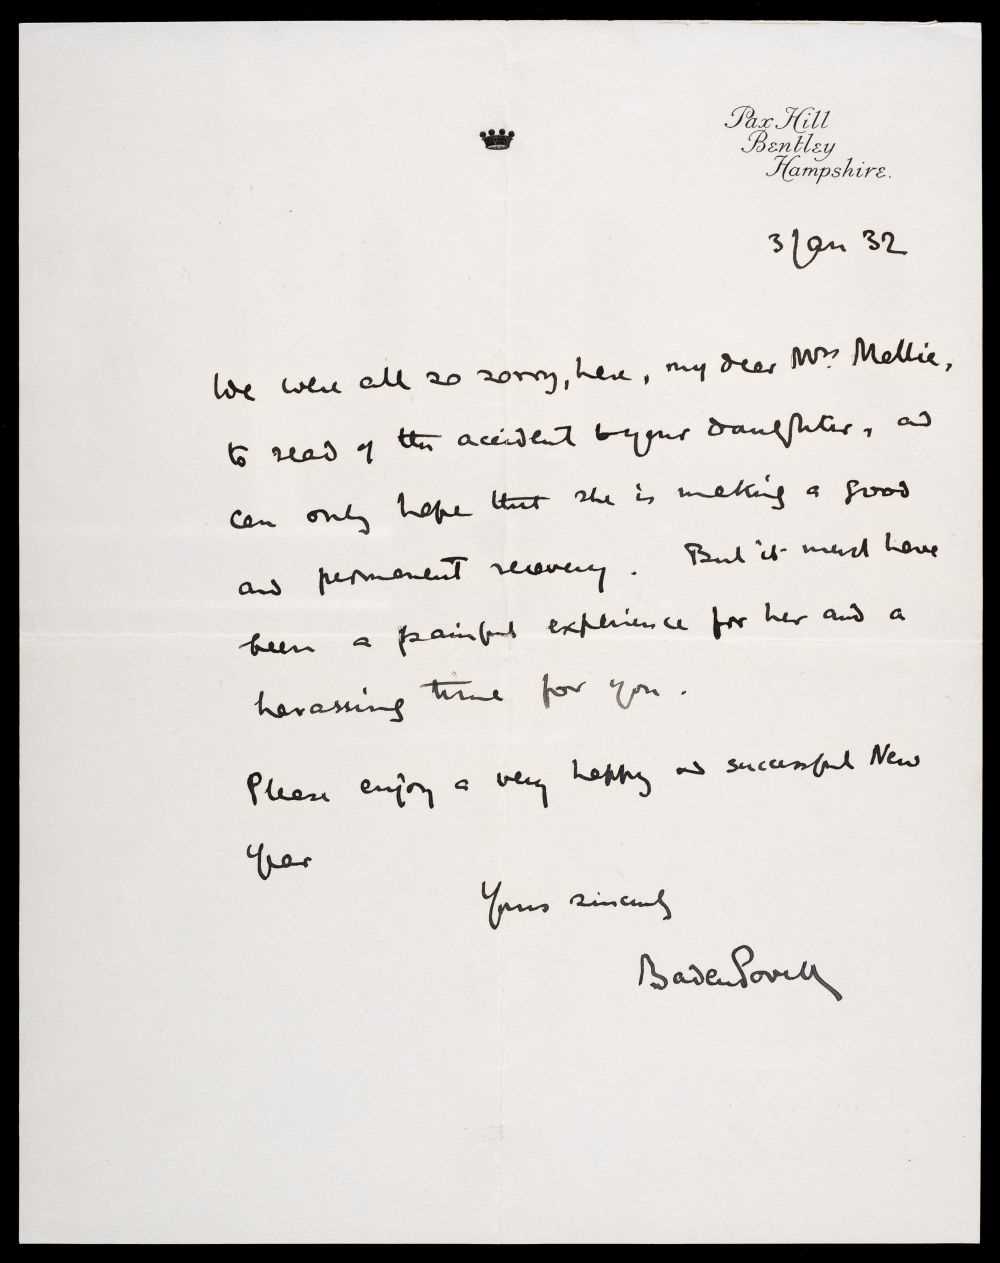 Pax Hill
Bentley
Hampshire.
3 Jan 32
We were all so sorry, here, my dear Mrs. Mellie,
to read of the accident to your daughter, and
can only hope that she is making a good
and permanent recovery. But it must have
been a painful experience for her and a
harassing time for you.
Please enjoy a very happy and successful New
Year
Yours sincerely
Baden Powell